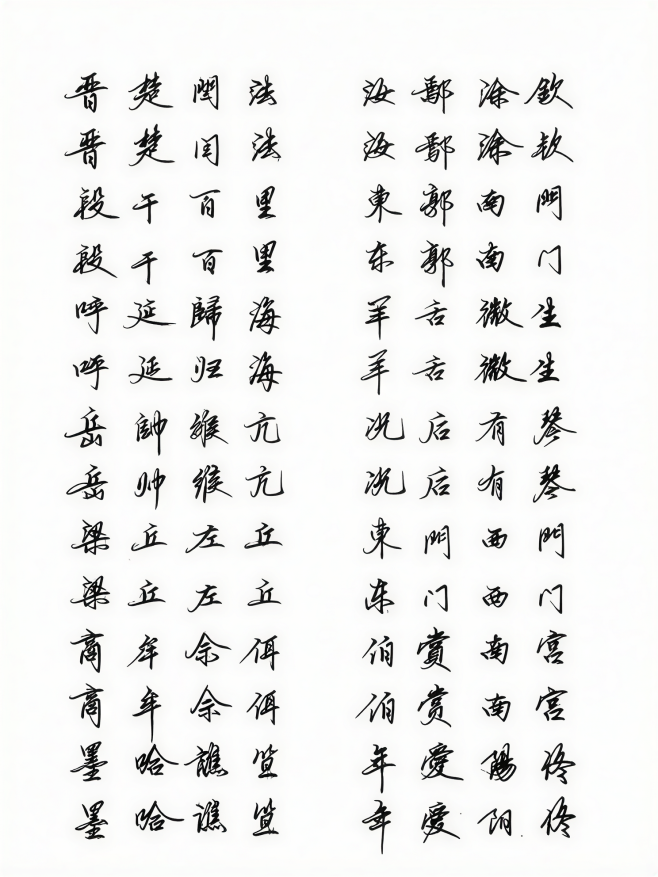 晋楚閆法 汝鄢涂欽
晋楚闫法 汝鄢涂钦
段干百里 東郭南門
段干百里 东郭南门
呼延歸海 羊舌微生
呼延归海 羊舌微生
岳帥緱亢 况后有琴
岳帅缑亢 况后有琴
梁丘左丘 東門西門
梁丘左丘 东门西门
商牟佘佴 伯賞南宮
商牟佘佴 伯赏南宫
墨哈譙笪 年愛陽佟
墨哈谯笪 年爱阳佟